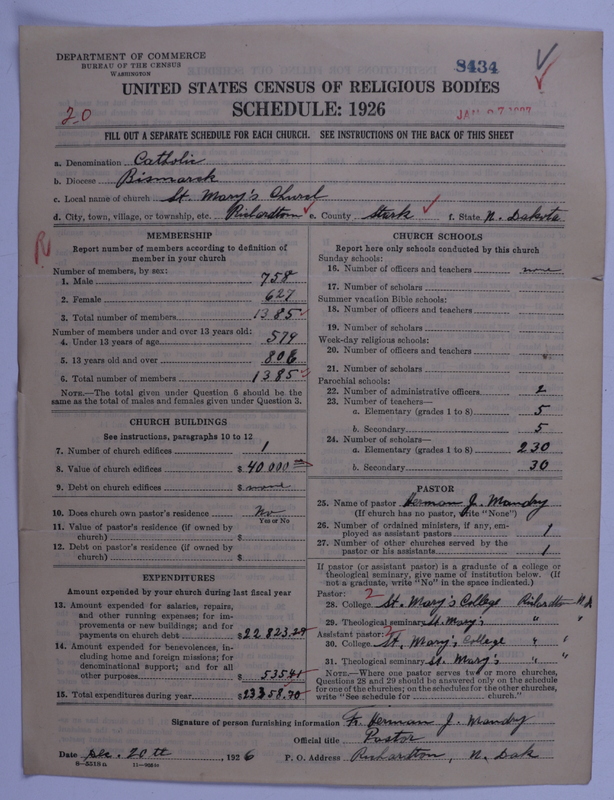 DEPARTMENT OF COMMERCE
BUREAU OF THE CENSUS
WASHINGTON
8434
UNITED STATES CENSUS OF RELIGIOUS BODIES
SCHEDULE: 1926
20
FILL OUT A SEPARATE SCHEDULE FOR EACH CHURCH. SEE INSTRUCTIONS ON THE BACK OF THIS SHEET
a. Denomination Catholic
b. Diocese Bismarck
c. Local name of church St. Mary's Church
d. City, town, village, or township, etc. Richardton e. County Stark f. State N. Dakota
R
MEMBERSHIP
Report number of members according to definition of
member in your church
Number of members, by sex:
1. Male 758
2. Female 627
3. Total number of members 1385
Number of members under and over 13 years old:
4. Under 13 years of age 579
5. 13 years old and over 806
6. Total number of members 1385
NOTE.—The total given under Question 6 should be
the same as the total of males and females given under Question 3.
CHURCH BUILDINGS
See instructions, paragraphs 10 to 12
7. Number of church edifices 1
8. Value of church edifices $ 40 000
9. Debt on church edifices $ none
10. Does church own pastor's residence No
Yes or No
11. Value of pastor's residence (if owned by
church) $
12. Debt on pastor's residence (if owned by
church) $
EXPENDITURES
Amount expended by your church during last fiscal year
13. Amount expended for salaries, repairs,
and other running expenses; for im-
provements or new buildings; and for
payments on church debt $ 22 823.29
14. Amount expended for benevolences, in-
cluding home and foreign missions; for
denominational support; and for all
other purposes $ 535.41
15. Total expenditures during year $ 23358.70
CHURCH SCHOOLS
Report here only schools conducted by this church
Sunday schools:
16. Number of officers and teachers none
17. Number of scholars
Summer vacation Bible schools:
18. Number of officers and teachers
19. Number of scholars
Week-day religious schools:
20. Number of officers and teachers
21. Number of scholars
Parochial schools:
22. Number of administrative officers 2
23. Number of teachers—
a. Elementary (grades 1 to 8) 5
b. Secondary 5
24. Number of scholars—
a. Elementary (grades 1 to 8) 230
b. Secondary 30
PASTOR
25. Name of pastor Herman J. Mandry
(If church has no pastor, write "None")
26. Number of ordained ministers, if any, em-
ployed as assistant pastors 1
27. Number of other churches served by the
pastor or his assistants 1
If pastor (or assistant pastor) is a graduate of a college or
theological seminary, give name of institution below. (If
not a graduate, write "No" in the space indicated.)
Pastor: 2
28. College St. Mary's College Richardton N.D.
29. Theological seminary St. Mary's " "
Assistant pastor: 2
30. College St. Mary's College " "
31. Theological seminary St. Mary's " "
NOTE.—Where one pastor serves two or more churches,
Questions 28 and 29 should be answered only on the schedule
for one of the churches; on the schedules for the other churches,
write "See schedule for church."
Signature of person furnishing information Fr. Herman J. Mandry
Official title Pastor
Date Dec. 20th, 1926 P. O. Address Richardton, N. Dak
8-5518a